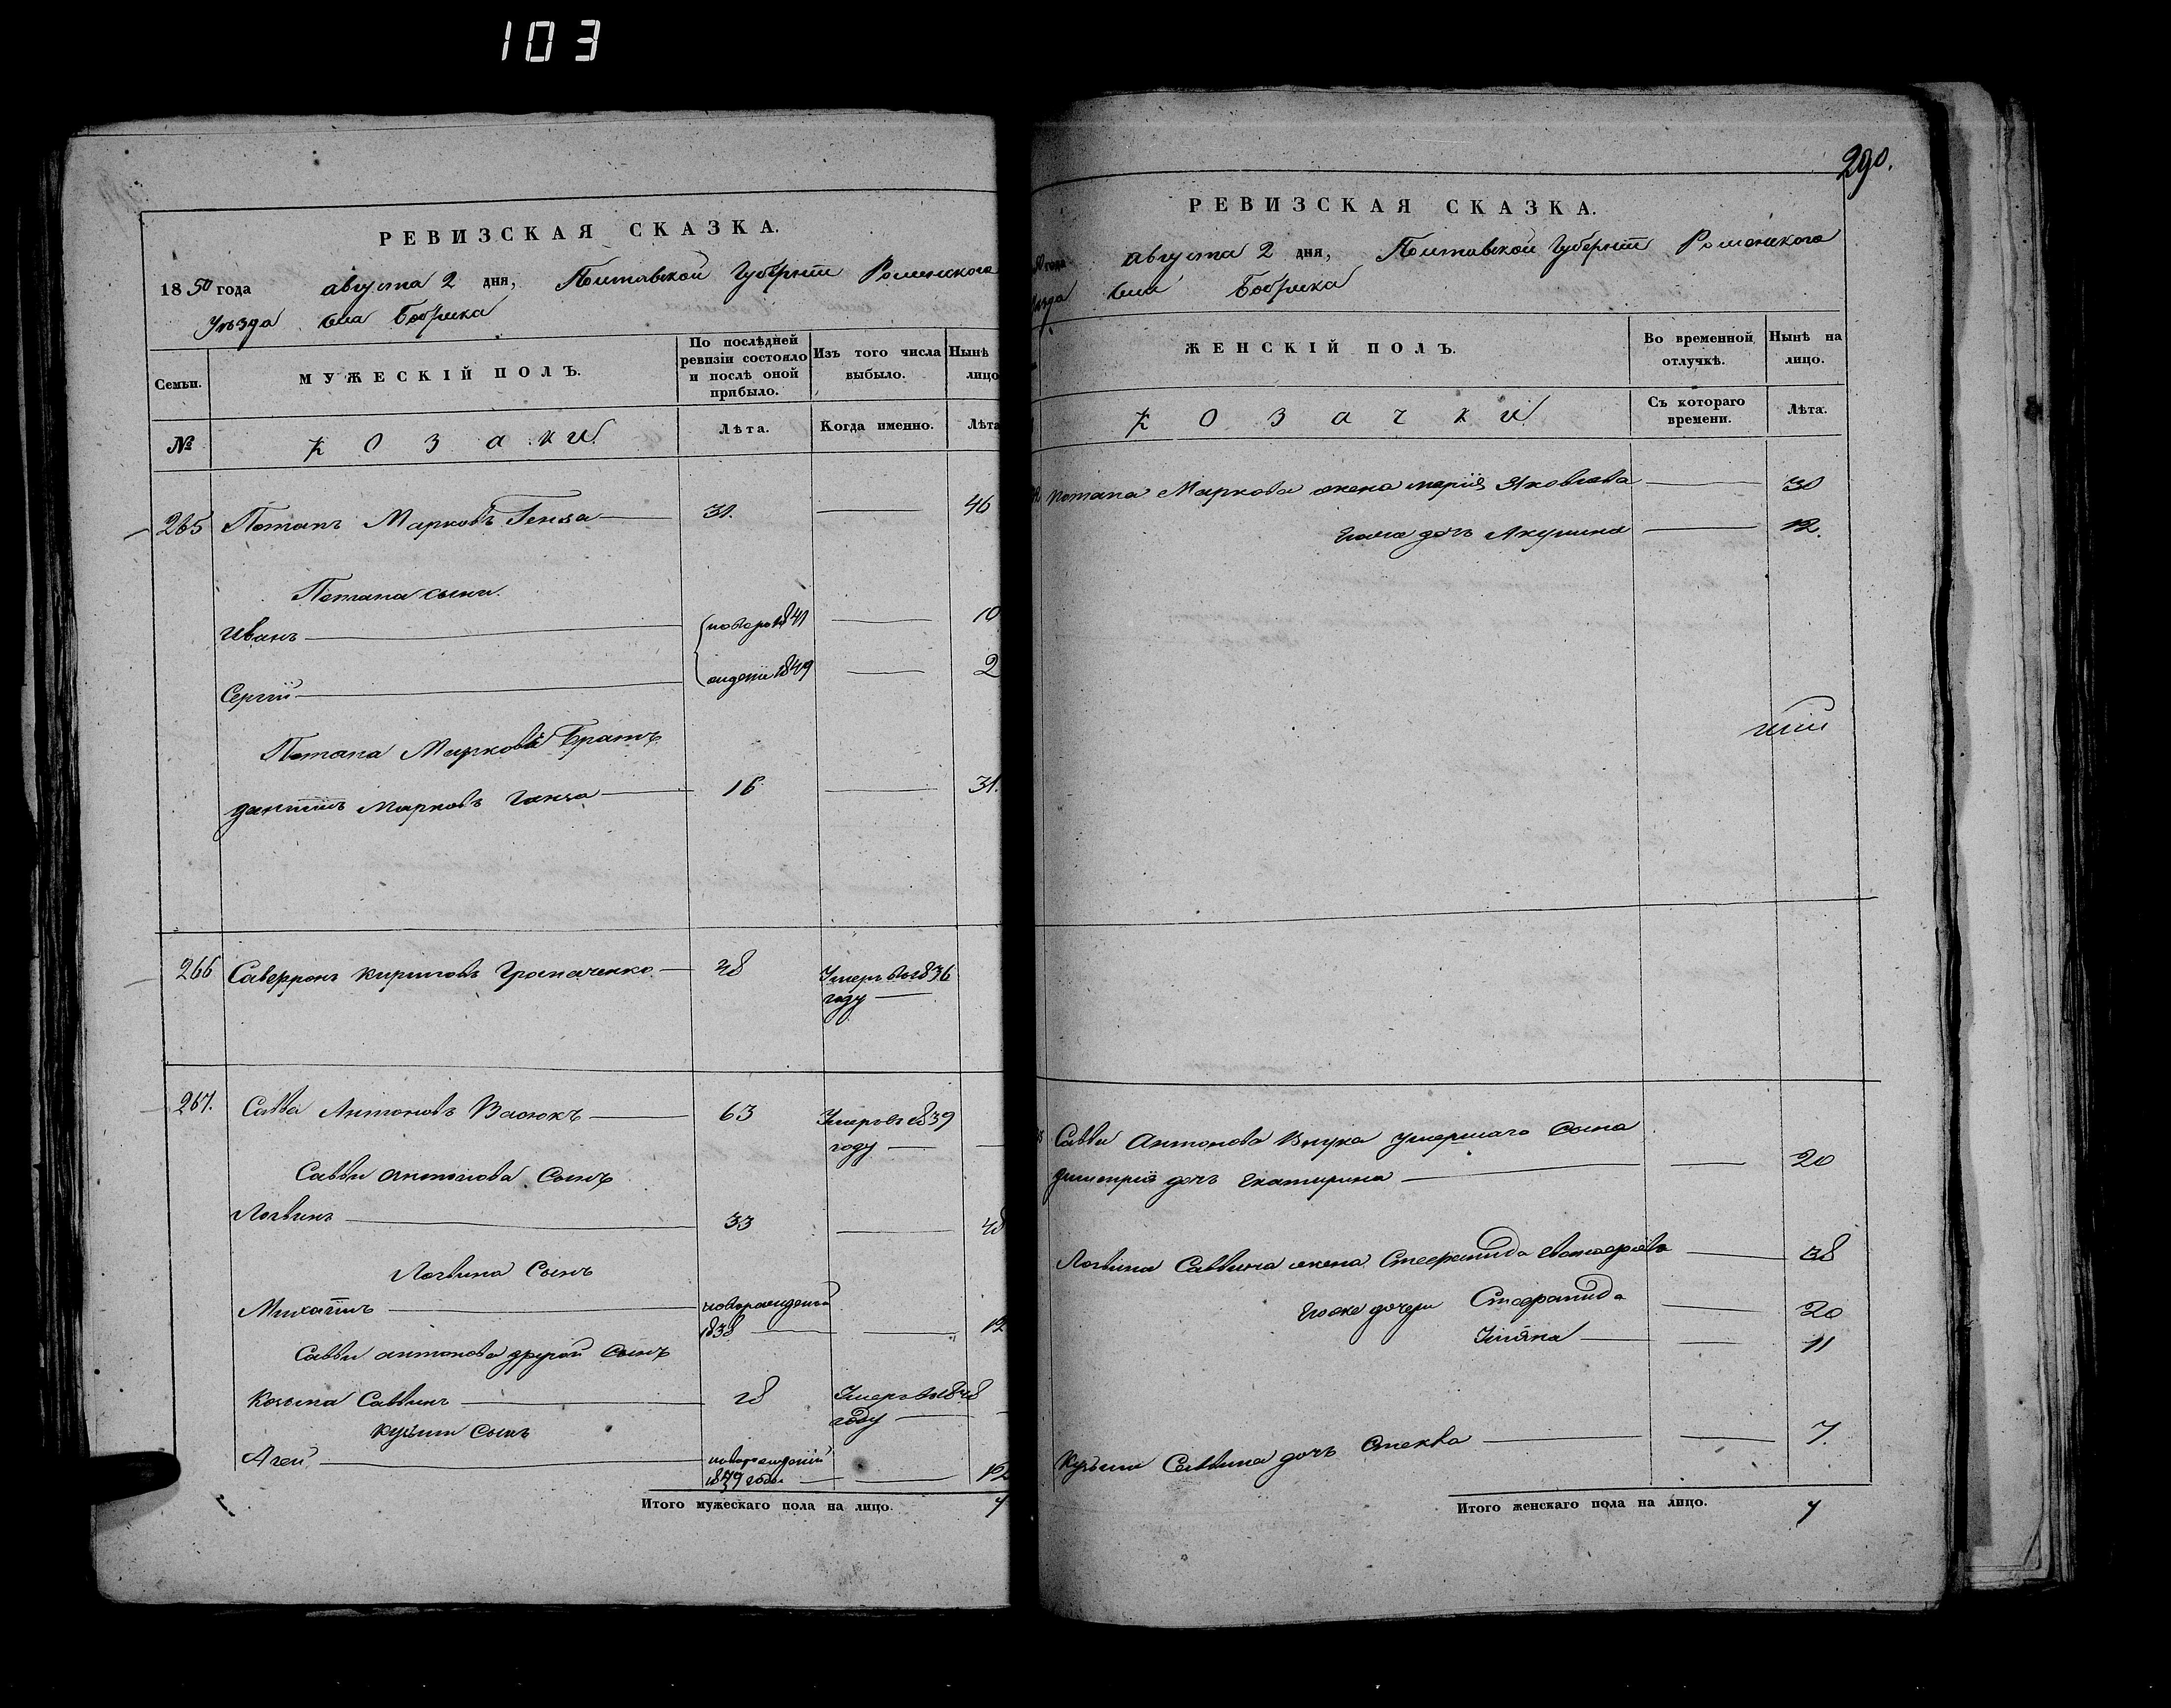 103
РЕВИЗСКАЯ СКАЗКА.
1850 года августа 2 дня, Полтавской Губернїи Роменского
Уѣзда села Бобрика
Семьи.
МУЖЕСКІЙ ПОЛЪ.
По послѣдней
ревизіи состояло
и послѣ оной
прибыло.
Изъ того числа
выбыло.
Нынѣ
лицо
№
козаки
Лѣта.
Когда именно.
Лѣта
265 Потапъ Марковъ 31. 46
Потапа сыны.
Иванъ новоро 1841 10
Сергій жденіи 1849 2
Потапа Маркова Братъ
Даніилъ Марковъ 16 31.
266 Кириловъ 48 Умеръ в 1836
году
267. Савва Антоновъ Васюкъ 63 Умеръ в 1839
году
Саввы Антонова Сынъ
Логвинъ 33 48
Логвина Сынъ
Михаилъ новорожденый
1838 12
Саввы Антонова другой Сынъ
Козьма Саввинъ 28 Умеръ в 1848
году
Кузьмы Сынъ
Агей новорожденій
1839 года 12
Итого мужескаго пола на лицо. 7
290.
РЕВИЗСКАЯ СКАЗКА.
50 года августа 2 дня, Полтавской Губернїи Роменского
Уѣзда села Бобрика
ЖЕНСКІЙ ПОЛЪ.
Во временной
отлучкѣ.
Нынѣ на
лицо.
козачки
Съ котораго
времени.
Лѣта.
Потапа Маркова жена Марія Яковлева 30
Его же дочь Акулина 12.
Саввы Антонова Внука умершаго Сына
Димитрія дочь Екатерина 20
Логвина Саввина жена Стефанида 38
Его же дочери Стефанида 20
Уліяна 11
Кузьмы Саввина дочь Фекла 7.
Итого женскаго пола на лицо. 7